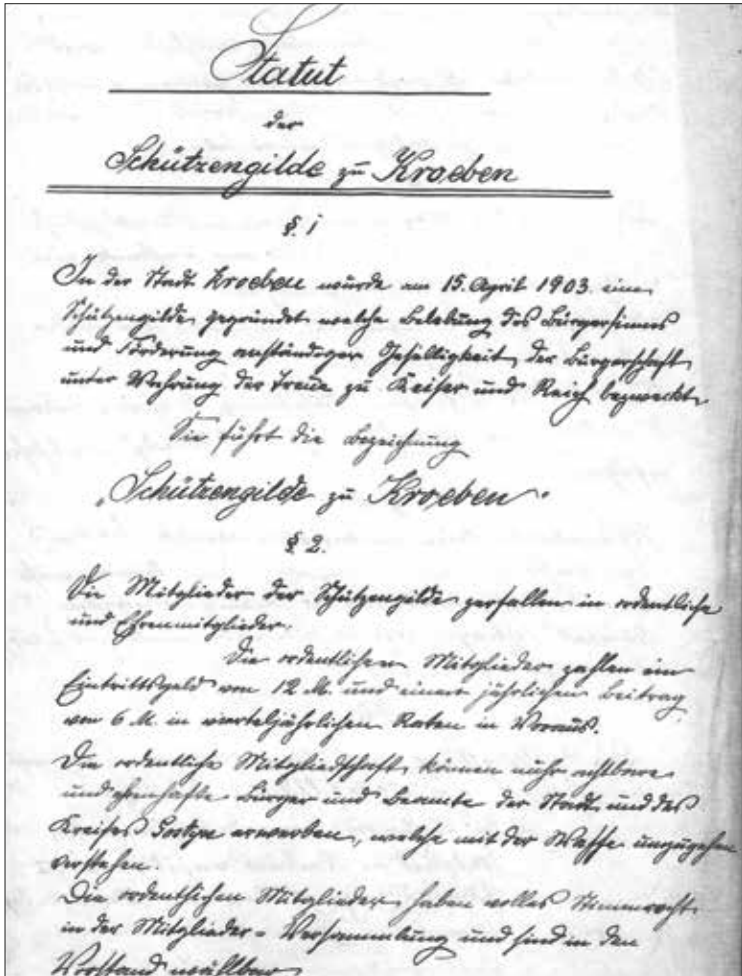 Statut
der
Schützengilde zu Kroeben
§. 1
In der Stadt Kroeben wurde am 15. April 1903. eine
Schützengilde gegründet welche Belebung des Bürgersinnes
und Förderung anständiger Geselligkeit der Bürgerschaft
unter Wahrung der Treue zu Keiser und Reich bezweckt.
Sie führt die Bezeichnung
„Schützengilde zu Kroeben“.
§ 2.
Die Mitglieder der Schützengilde zerfallen in ordentliche
und Ehrenmitglieder.
Die ordentlichen Mitglieder zahlen ein
Eintrittsgeld von 12 M. und einen jährlichen Beitrag
von 6 M. in vierteljährlichen Raten in Voraus.
Die ordentliche Mitgliedschaft können nuhr achtbare
und ehrenhafte Bürger und Beamte der Stadt und des
Kreises Gostyn erwerben, welche mit der Waffe umzugehen
verstehen.
Die ordentlichen Mitglieder haben volles Stimmrecht
in der Mitglieder-Versammlung und sind in den
Vorstand wählbar